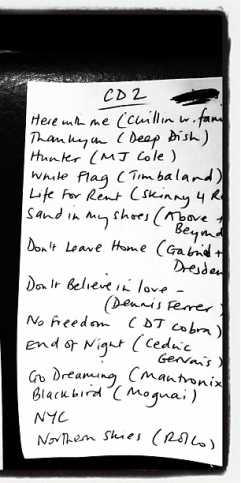 CD 2
Here with me (Chillin w. fam
Thankyou (Deep Dish)
Hunter (MJ Cole)
White Flag (Timbaland)
Life For Rent (Skinny 4 R
Sand in my shoes (Above +
Beyond
Don't Leave Home (Gabriel +
Dresden
Don't Believe in love –
(Dennis Ferrer)
No Freedom (DJ Cobra)
End of Night (Cedric
Gervais)
Go Dreaming (Mantronix
Blackbird (Mogwai)
NYC
Northern Skies (Rollo)